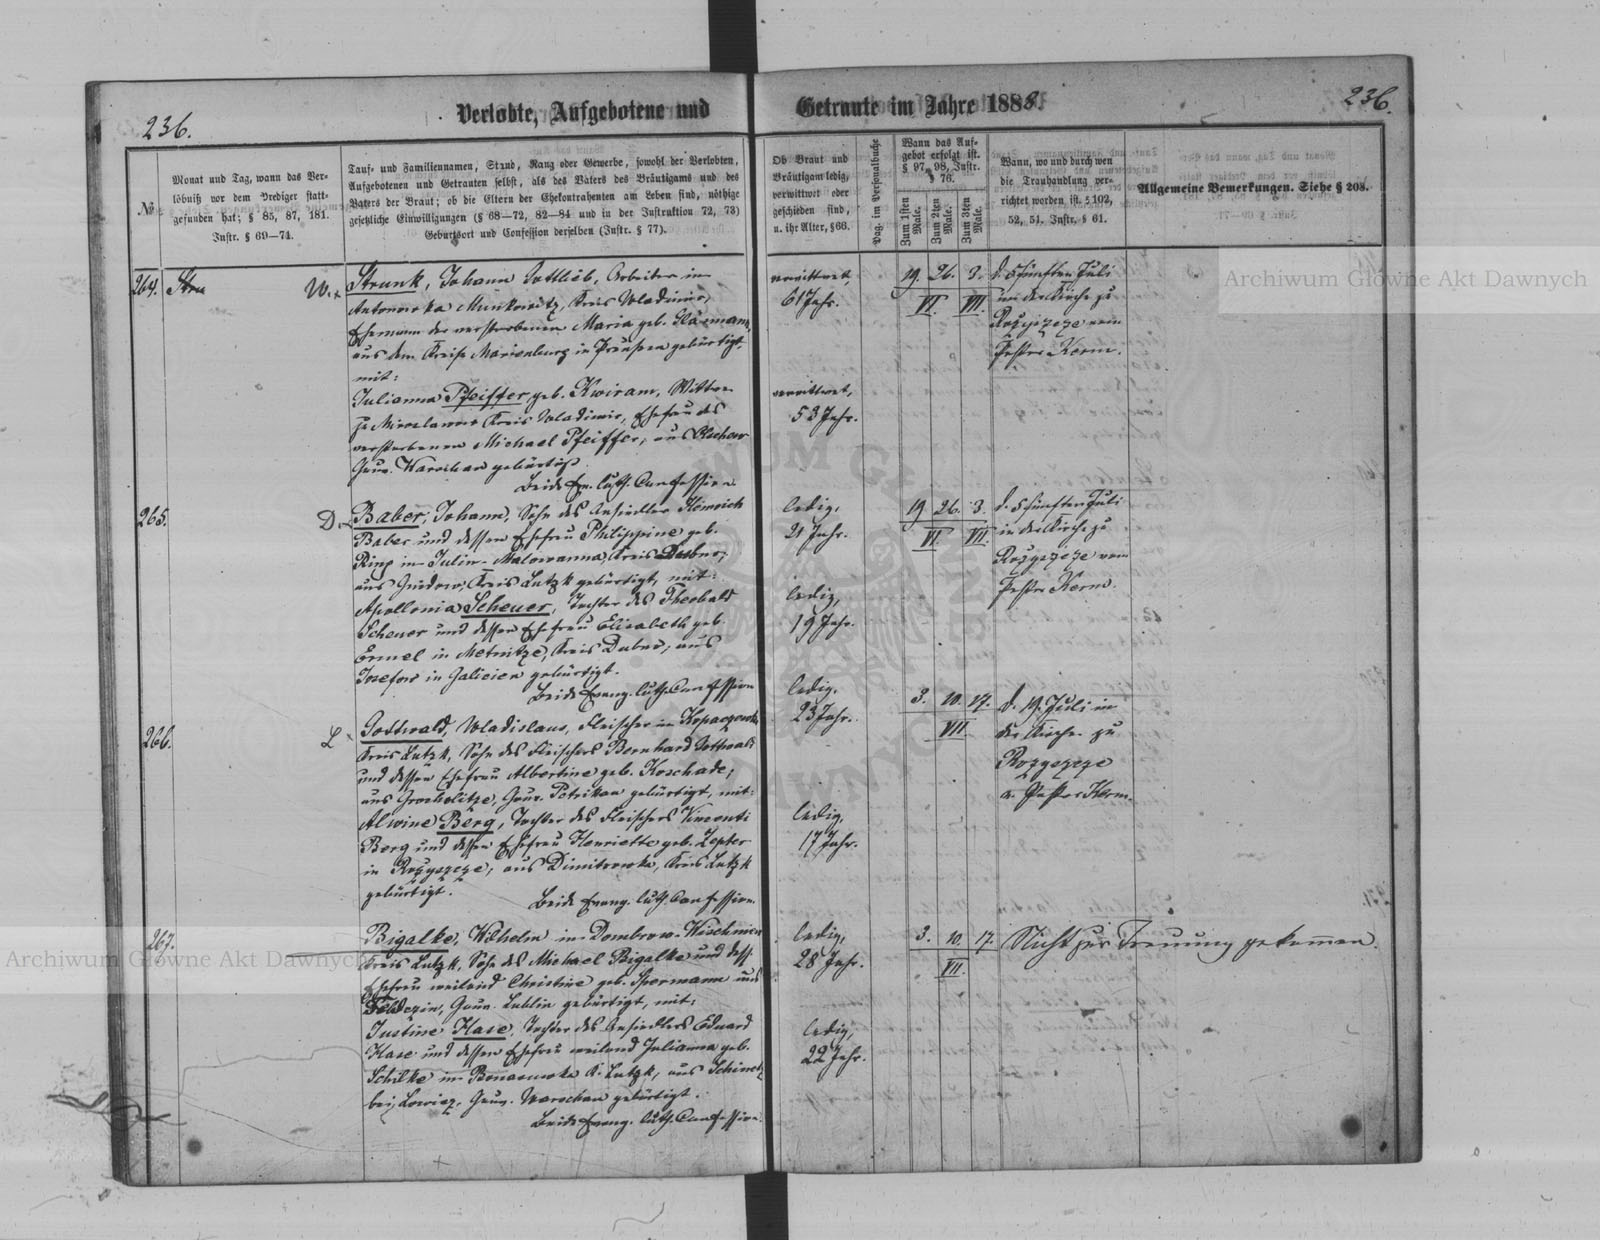 236.
Verlobte, Aufgebotene und
Getraute im Jahre 1888.
236.
№
Monat und Tag, wann das Ver-
löbniß vor dem Prediger statt-
gefunden hat; § 85, 87, 181.
Instr. § 69—74.
Tauf- und Familiennamen, Stand, Rang oder Gewerbe, sowohl der Verlobten,
Aufgebotenen und Getrauten selbst, als des Vaters des Bräutigams und des
Vaters der Braut; ob die Eltern der Ehekontrahenten am Leben sind, nöthige
gesetzliche Einwilligungen (§ 68—72, 82—84 und in der Instruktion 72, 73)
Geburtsort und Confession derselben (Instr. § 77).
Ob Braut und
Bräutigam ledig,
verwittwet oder
geschieden sind,
u. ihr Alter, § 66.
Pag. im Personalbuche
Wann das Auf-
gebot erfolgt ist.
§ 97, 98, Instr.
§ 76.
Zum 1sten Male.
Zum 2ten Male.
Zum 3ten Male.
Wann, wo und durch wen
die Trauhandlung ver-
richtet worden ist. § 102,
52, 51. Instr. § 61.
Allgemeine Bemerkungen. Siehe § 208.
264.
Stru
W.
Strunk, Johann Gottlieb, Arbeiter in
Antonowka Kreis Wladimir,
Ehemann der verstorbenen Maria geb.
aus dem Kreise Marienburg in Preussen gebürtigt,
mit:
Julianna Pfeiffer, geb. Kwiram, Wittwe
zu Miroslawow Kreis Wladimir, Ehefrau des
verstorbenen Michael Pfeiffer, aus
Gouv. Warschau gebürtigt
Beide Ev. luth. Confession.
verwittwet,
61 Jahr.
verwittwet,
53 Jahr.
19. 26. 3.
VI. VII.
d. fünften Juli
in der Kirche zu
Rozyszcze vom
Pastor Kerm.
265.
D.
Baber, Johann, Sohn des Ansiedlers Heinrich
Baber und dessen Ehefrau Philippine geb.
Ring in Julin-Malowanna, Kreis Dubno,
aus Kreis Lutzk gebürtigt, mit:
Apollonia Scheuer, Tochter des Theobald
Scheuer und dessen Ehefrau Elisabeth geb.
Ermel in Kreis Dubno, aus
Josefow in Galicien gebürtigt.
Beide Evang. luth. Confession
ledig,
21 Jahr.
ledig,
19 Jahr.
19 26. 3.
VI. VII.
d. fünften Juli
in der Kirche zu
Rozyszcze vom
Pastor Kerm.
266.
L
Gottwald, Wladislaus, Fleischer in
Kreis Lutzk, Sohn des Fleischers Bernhard Gottwald
und dessen Ehefrau Albertine geb. Koschade,
aus Grocholitze, Gouv. Petrikau gebürtigt, mit:
Alwine Berg, Tochter des Fleischers Vincenti
Berg und dessen Ehefrau Henriette geb. Zepter
in Rozyszcze, aus Dimitrowka, Kreis Lutzk
gebürtigt.
Beide Evang. luth. Confession.
ledig.
23 Jahr.
ledig,
17 Jahr.
3. 10. 17.
VII.
d. 19. Juli in
der Kirche zu
Rozyszcze
v. Pastor Kerm.
267.
Bigalke, Wilhelm in Dombrow-
Kreis Lutzk, Sohn des Michael Bigalke und dess.
Ehefrau weiland Christine geb. Spermann aus
Gouv. Lublin gebürtigt, mit:
Justine Hase, Tochter des Ansiedlers Eduard
Hase und dessen Ehefrau weiland Julianna geb.
Schilke in K. Lutzk, aus
bei Lowicz, Gouv. Warschau gebürtigt.
Beide Evang. luth. Confession.
ledig,
28 Jahr.
ledig,
22 Jahr.
3. 10. 17.
VII.
Nicht zur Trauung gekommen.
Archiwum Główne Akt Dawnych
Archiwum Główne Akt Dawnych